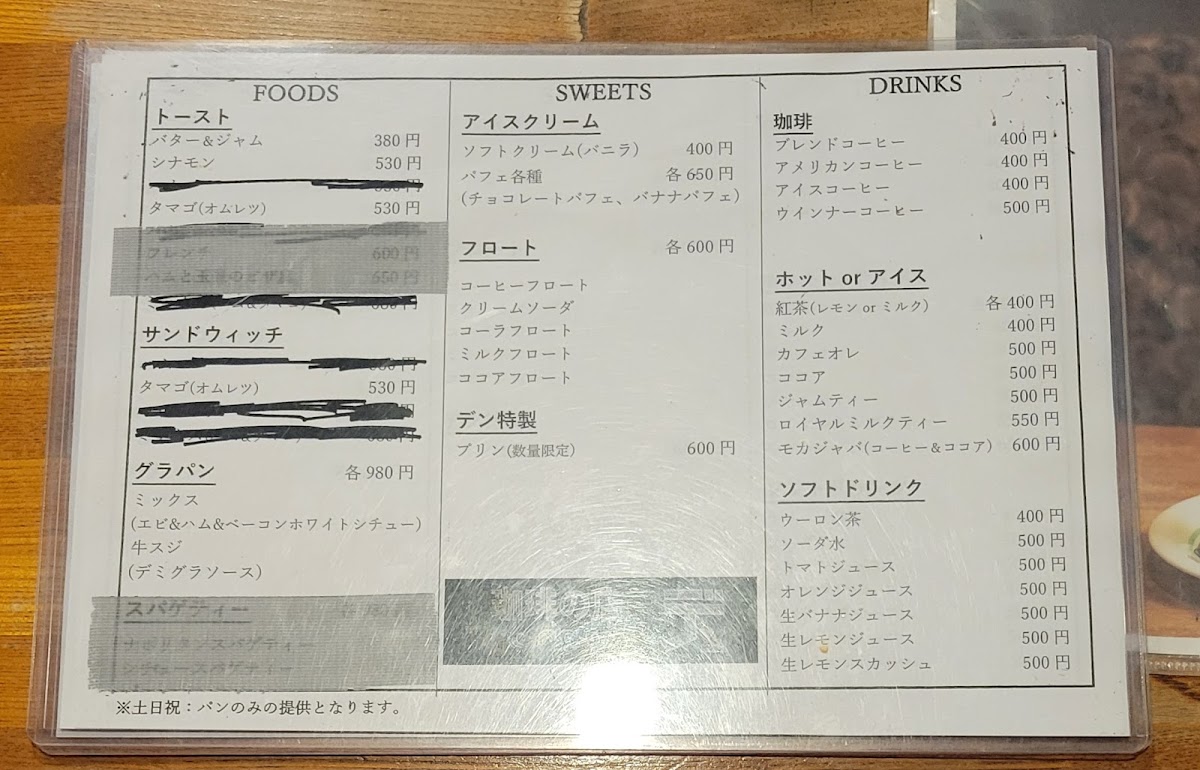 FOODS
トースト
バター&ジャム 380円
シナモン 530円
タマゴ(オムレツ) 530円
600円
650円
サンドウィッチ
タマゴ(オムレツ) 530円
グラパン 各980円
ミックス
(エビ&ハム&ベーコンホワイトシチュー)
牛スジ
(デミグラソース)
スパゲティー
※土日祝:パンのみの提供となります。
SWEETS
アイスクリーム
ソフトクリーム(バニラ) 400円
パフェ各種 各650円
(チョコレートパフェ、バナナパフェ)
フロート 各600円
コーヒーフロート
クリームソーダ
コーラフロート
ミルクフロート
ココアフロート
デン特製
プリン(数量限定) 600円
DRINKS
珈琲
ブレンドコーヒー 400円
アメリカンコーヒー 400円
アイスコーヒー 400円
ウインナーコーヒー 500円
ホット or アイス
紅茶(レモン or ミルク) 各400円
ミルク 400円
カフェオレ 500円
ココア 500円
ジャムティー 500円
ロイヤルミルクティー 550円
モカジャバ(コーヒー&ココア) 600円
ソフトドリンク
ウーロン茶 400円
ソーダ水 500円
トマトジュース 500円
オレンジジュース 500円
生バナナジュース 500円
生レモンジュース 500円
生レモンスカッシュ 500円